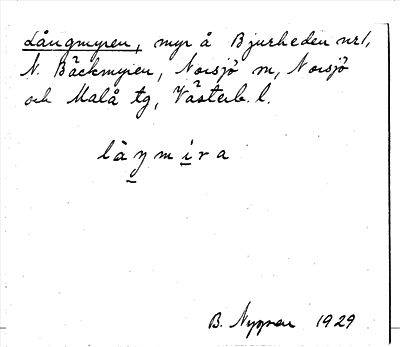 Långmyren, myr å Bjurheden nr 1,
N. Bäckmyren, Norsjö sn, Norsjö
och Malå tg, Västerb. l.
låŋmira
B. Nygren 1929